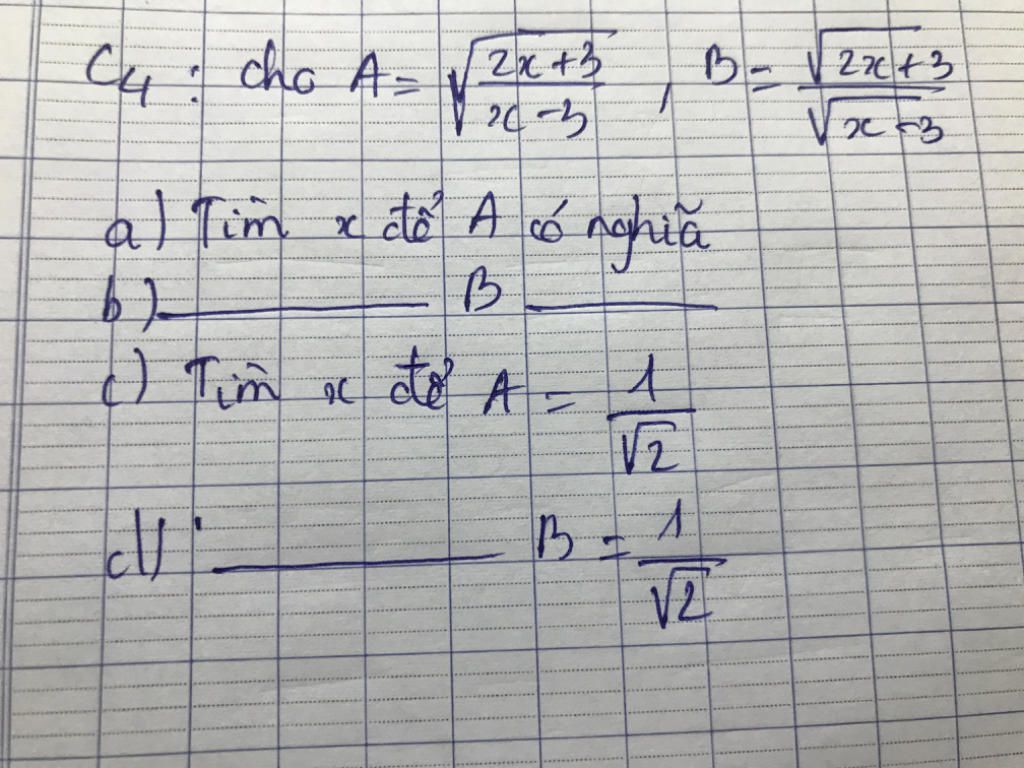 C4 : cho A = √(2x+3)/(x-3) , B = √(2x+3)/√(x-3)
a) Tìm x để A có nghiã
b) ——— B ———
c) Tìm x để A = 1/√2
d) ——— B = 1/√2